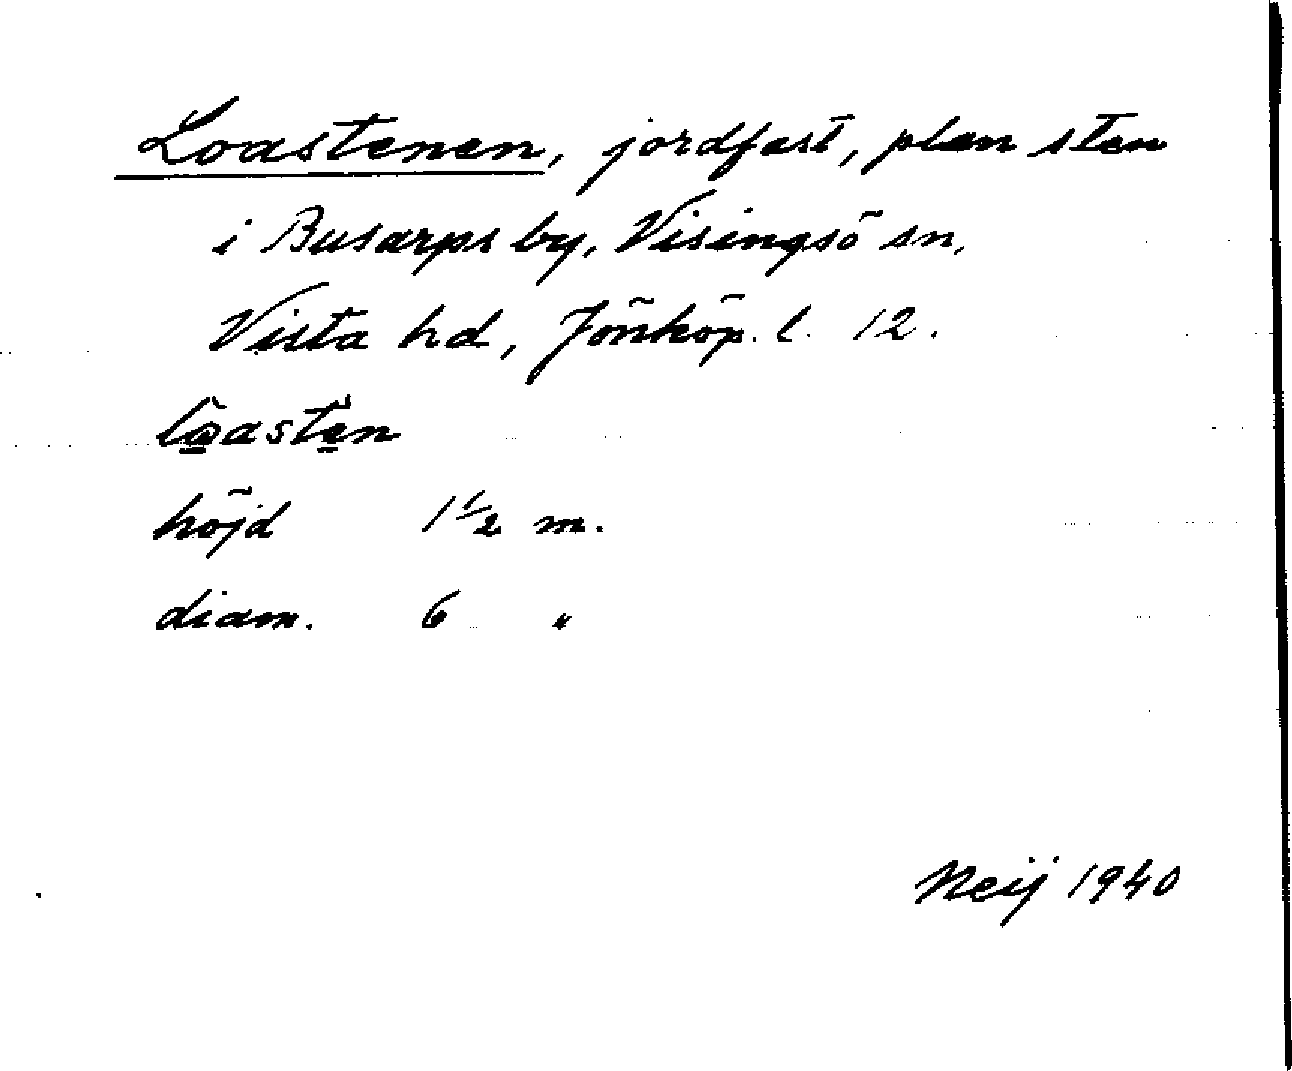 Loastenen, jordfast, plan sten
i Busarps by, Visingsö sn,
Vista hd, Jönköp. l. 12.
lòastèn
höjd 1 1/2 m.
diam. 6 "
Neij 1940